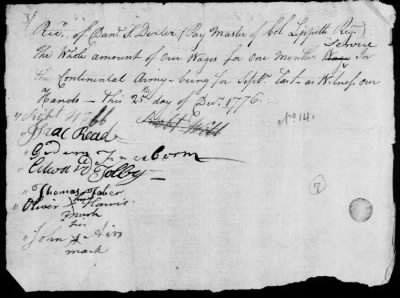 Rec'd of Dan'l S. Dexter (Pay Master of Col Lippetts Reg't)
the Whole amount of Our Wages for One Months Service In
the Continental Army - being for Sept'r Last - as Witness our
Hands - this 28th day of Dec'r 1776 -
Webb
Isaac Read
Gideon Freeborn
Edward Tolby
Thomas Tober
Oliver his Harris
mark
his
John X
mark
No 14
7